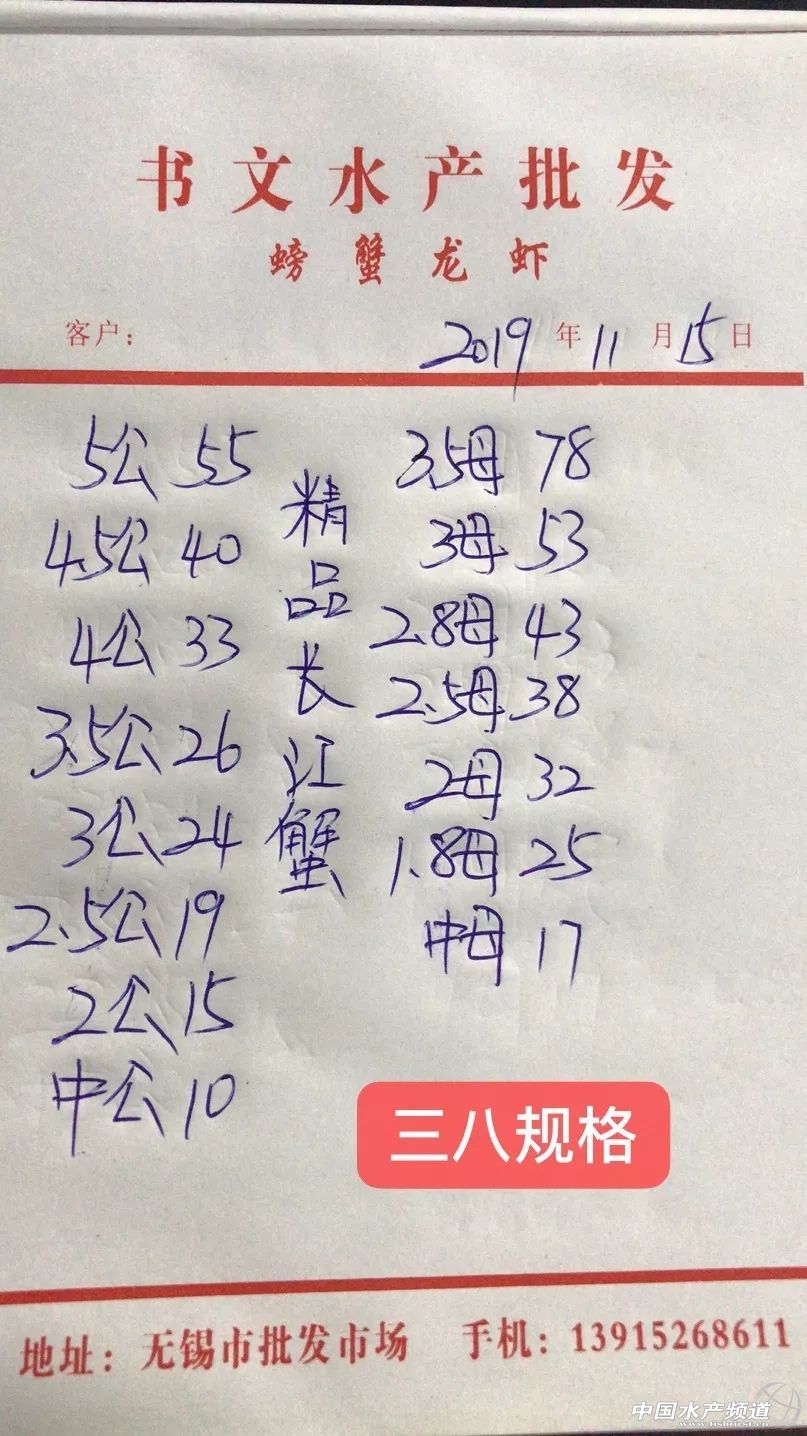 书文水产批发
螃蟹龙虾
客户：
2019年11月15日
5公 55
4.5公 40
4公 33
3.5公 26
3公 24
2.5公 19
2公 15
中公 10
精品长江蟹
3.5母 78
3母 53
2.8母 43
2.5母 38
2母 32
1.8母 25
中母 17
三八规格
地址：无锡市批发市场 手机：13915268611
中国水产频道
www.fishfirst.cn